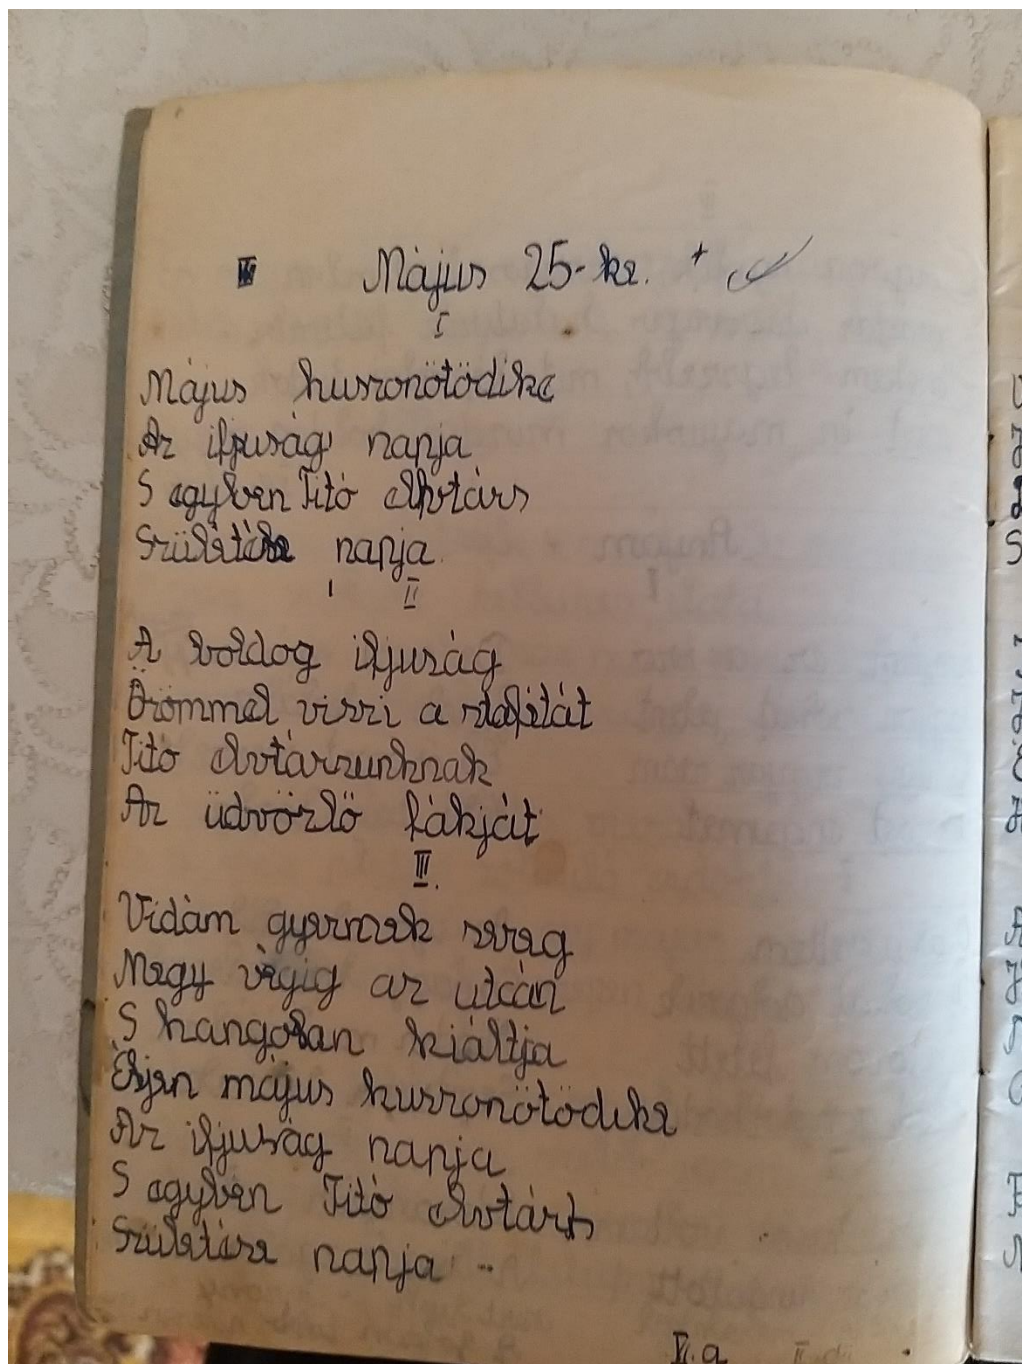 Május 25-ke. +
I
Május huszonötödike
Az ifjuság napja
S egyben Titó elvtárs
Születése napja.
II
A boldog ifjuság
Örömmel viszi a stafétát
Titó elvtárzunknak
Az üdvözlő fákját
III.
Vidám gyermek sereg
Megy végig az utcán
S hangosan kiáltja
Éljen május huszonötödike
Az ifjuság napja
S egyben Titó elvtárs
Születése napja
VI. a